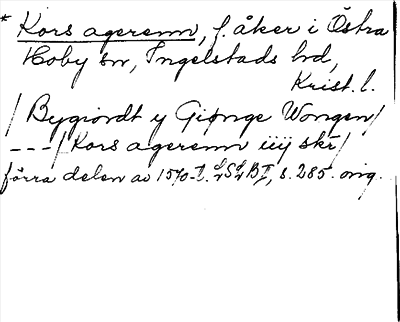 * Kors agerenn, f. åker i Östra
Hoby sn, Ingelstads hd,
Krist. l.
/ Bygiordt y Giønge Wongen/
---/ Kors agerenn iiij skr/
förra delen av 1570-t. LSLB II, s. 285. orig.